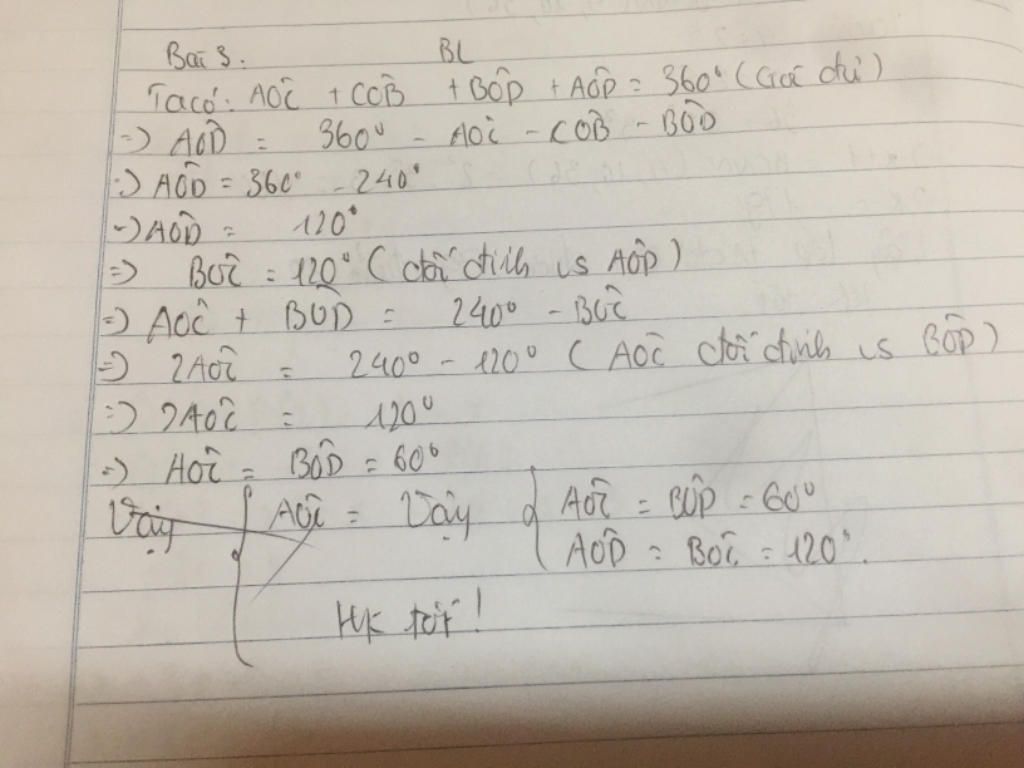 Bài 3. BL
Ta có: AOC̑ + COB̑ + BOD̑ + AOD̑ = 360° (Góc
=> AOD̑ = 360° - AOC̑ - COB̑ - BOD̑
=> AOD̑ = 360° - 240°
=> AOD̑ = 120°
=> BOC̑ = 120° (đối đỉnh vs AOD̑)
=> AOC̑ + BOD̑ = 240° - BOC̑
=> 2AOC̑ = 240° - 120° (AOC̑ đối đỉnh vs BOD̑)
=> 2AOC̑ = 120°
=> AOC̑ = BOD̑ = 60°
Vậy { AOC̑ = Vậy { AOC̑ = BOD̑ = 60°
AOD̑ = BOC̑ = 120°.
HK tốt!